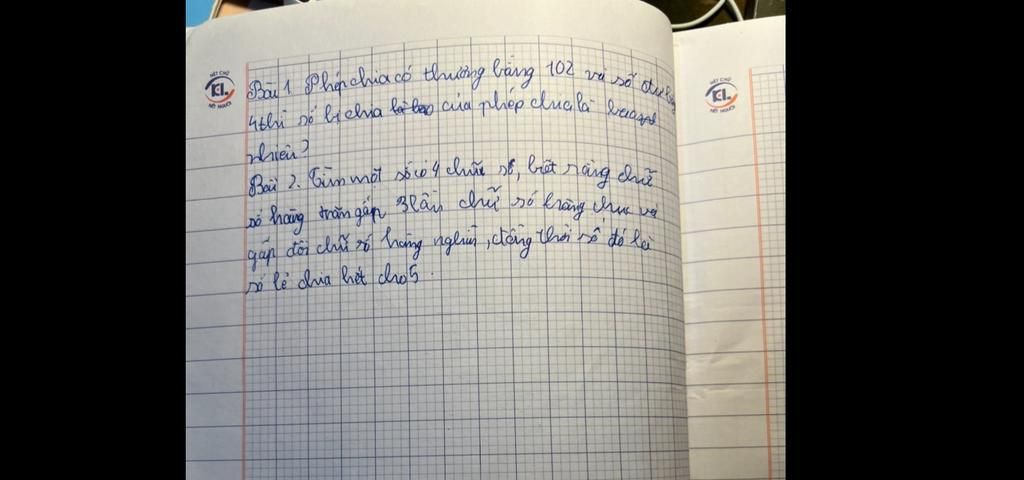 Bài 1. Phép chia có thương bằng 102 và số dư bằng
4 thì số bị chia là bao của phép chia là bao
nhiêu?
Bài 2. Tìm một số có 4 chữ số, biết rằng chữ
số hàng trăm gấp 3 lần chữ số hàng chục và
gấp đôi chữ số hàng nghìn, đồng thời số đó là
số lẻ chia hết cho 5.
NÉT CHỮ
KL
NẾT NGƯỜI
NÉT CHỮ
KL
NẾT NGƯỜI